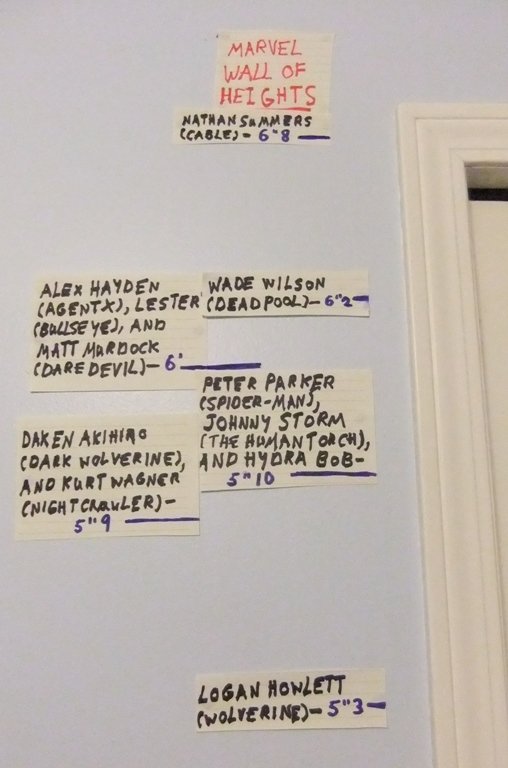 MARVEL
WALL OF
HEIGHTS
NATHAN SUMMERS
(CABLE)- 6"8
ALEX HAYDEN
(AGENT X), LESTER
(BULLSEYE), AND
MATT MURDOCK
(DAREDEVIL)- 6'
WADE WILSON
(DEADPOOL)- 6"2
PETER PARKER
(SPIDER-MAN),
JOHNNY STORM
(THE HUMAN TORCH),
AND HYDRA BOB-
5"10
DAKEN AKIHIRO
(DARK WOLVERINE),
AND KURT WAGNER
(NIGHTCRAWLER)-
5"9
LOGAN HOWLETT
(WOLVERINE)- 5"3